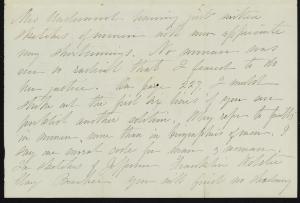 Mrs Underwood having just written
sketches of women with men opposite
my shortcomings. No woman was
ever so radical that I learned to the
her justice. On page 227 I would
strike out the first six lines if you are
publish another edition. Why refer to faults
in women, more than in biographies of men. I
say one moral code for man & woman.
In sketches of Jefferson Franklin Webster
Clay you will find no shadowing